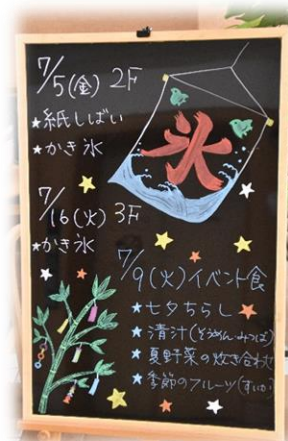 7/5(金) 2F
★紙しばい
★かき氷
氷
7/16(火) 3F
★かき氷
7/9(火)イベント食
★七夕ちらし
★清汁(そうめん・みつば)
★夏野菜の炊き合わせ
★季節のフルーツ(すいか)